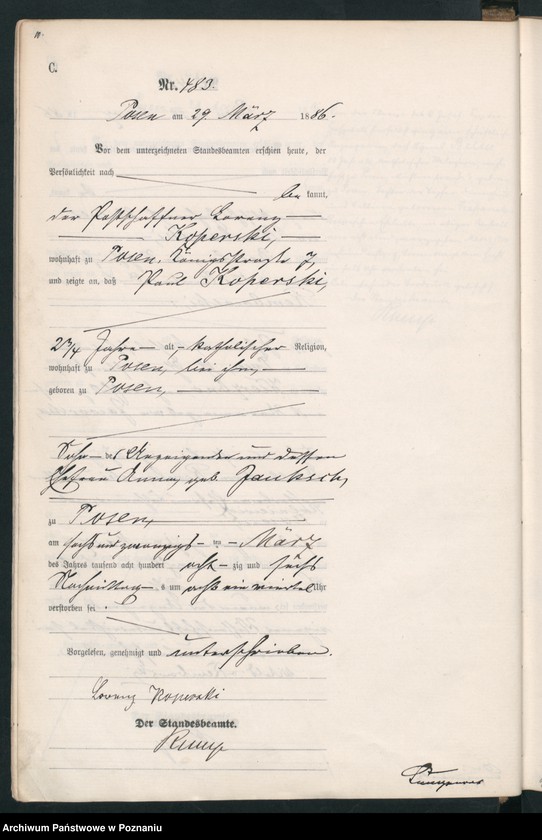 C.
Nr. 483.
Posen am 29. März 1886.
Vor dem unterzeichneten Standesbeamten erschien heute, der
Persönlichkeit nach
be kannt,
der Postschaffner Lorenz
Koperski,
wohnhaft zu Posen, Königsstraße 7,
und zeigte an, daß Paul Koperski,
2 3/4 Jahre alt, katholischer Religion,
wohnhaft zu Posen, bei ihm,
geboren zu Posen,
Sohn des Anzeigenden und dessen
Ehefrau Anna, geb. Jauksch,
zu Posen,
am sechs und zwanzigsten März
des Jahres tausend acht hundert acht zig und sechs
Nachmittags um acht ein viertel Uhr
verstorben sei.
Vorgelesen, genehmigt und unterschrieben.
Lorenz Koperski
Der Standesbeamte.
Archiwum Państwowe w Poznaniu